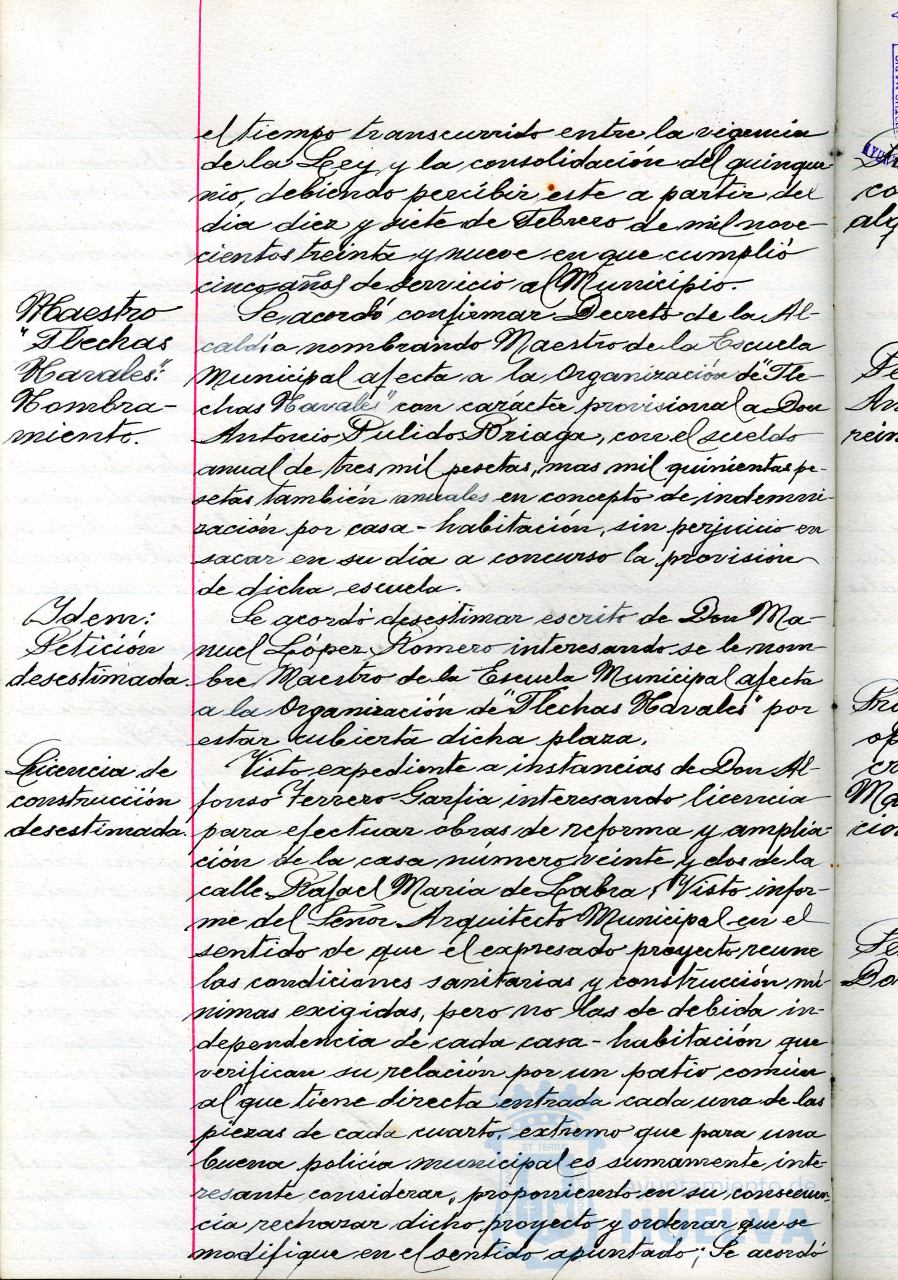 el tiempo transcurrido entre la vigencia
de la Ley y la consolidación del quinque-
nio, debiendo percibir este a partir del
dia diez y siete de Febrero de mil nove-
cientos treinta y nueve en que cumplió
cinco años de servicio al Municipio.
Maestro
"Flechas
Navales":
Nombra-
miento.
Se acordó confirmar Decreto de la Al-
caldía nombrando Maestro de la Escuela
Municipal afecta a la Organización de "Fle-
chas Navales" con carácter provisional a Don
Antonio Pulido Driaga, con el sueldo
anual de tres mil pesetas, mas mil quinientas pe-
setas también anuales en concepto de indemni-
zación por casa-habitación, sin perjuicio en
sacar en su día a concurso la provisión
de dicha escuela.
Idem:
Petición
desestimada.
Se acordó desestimar escrito de Don Ma-
nuel López Romero interesando se le nom-
bre Maestro de la Escuela Municipal afecta
a la Organización de "Flechas Navales" por
estar cubierta dicha plaza.
Licencia de
construcción
desestimada.
Visto expediente a instancias de Don Al-
fonso Ferrero Garfia interesando licencia
para efectuar obras de reforma y amplia-
ción de la casa número veinte y dos de la
calle Rafael María de Labra; Visto infor-
me del Señor Arquitecto Municipal en el
sentido de que el expresado proyecto reune
las condiciones sanitarias y construcción mí-
nimas exigidas, pero no las de debida in-
dependencia de cada casa-habitación que
verifican su relación por un patio común
al que tiene directa entrada cada una de las
piezas de cada cuarto, extremo que para una
buena policía municipal es sumamente inte-
resante considerar, proponiendo en su consecuen-
cia rechazar dicho proyecto y ordenar que se
modifique en el sentido apuntado; Se acordó
Ayuntamiento de
HUELVA